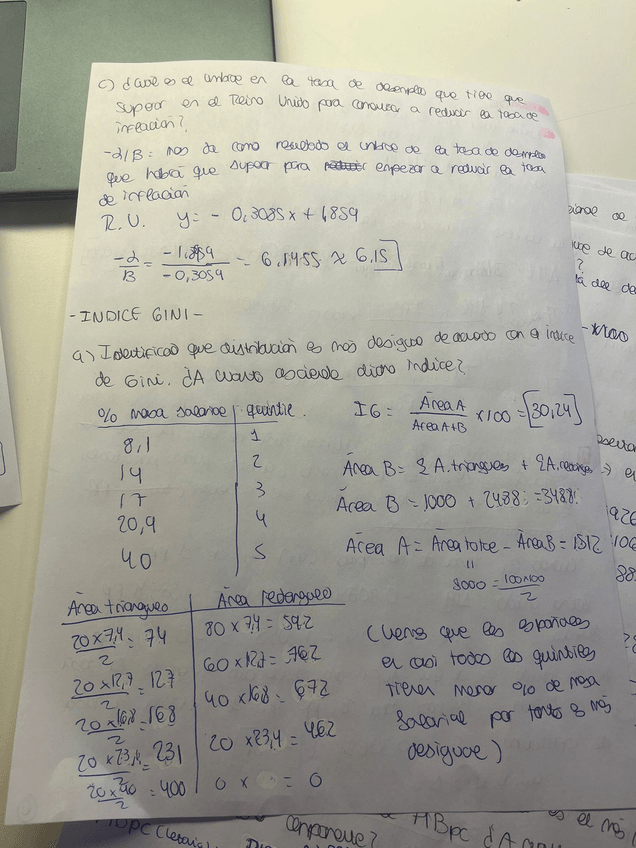 c) ¿Cuál es el umbral en la tasa de desempleo que tiene que
superar en el Reino Unido para comenzar a reducir la tasa de
inflación?
-α/B: nos da como resultado el umbral de la tasa de desempleo
que habrá que superar para empezar a reducir la tasa
de inflación
R.U. y = - 0,3085x + 1,859
-α/B = -1,859/-0,3059 = 6,1455 ≈ 6,15]
-INDICE GINI-
a) Identificad que distribución es más desigual de acuerdo con el índice
de Gini. ¿A cuanto asciende dicho índice?
% masa salarial | quintil
8,1 1
14 2
17 3
20,9 4
40 5
IG = Área A / Area A+B x100 = [30,24]
Área B = Σ A. triangulos + ΣA.
Área B = 1000 + 2488 = 3488
Área A = Área total - Área B = 1512
"
5000 = 100x100/2
Área triangulo | Área rectangulo
20 x 7,4 / 2 = 74 80 x 7,4 = 592
20 x 12,7 / 2 = 127 60 x 12,7 = 762
20 x 16,8 / 2 = 168 40 x 16,8 = 672
20 x 23,1 / 2 = 231 20 x 23,1 = 462
20 x 40 / 2 = 400 0 x = 0
(Vemos que los españoles
en casi todos los quintiles
tienen menor % de masa
salarial por tanto es más
desigual)